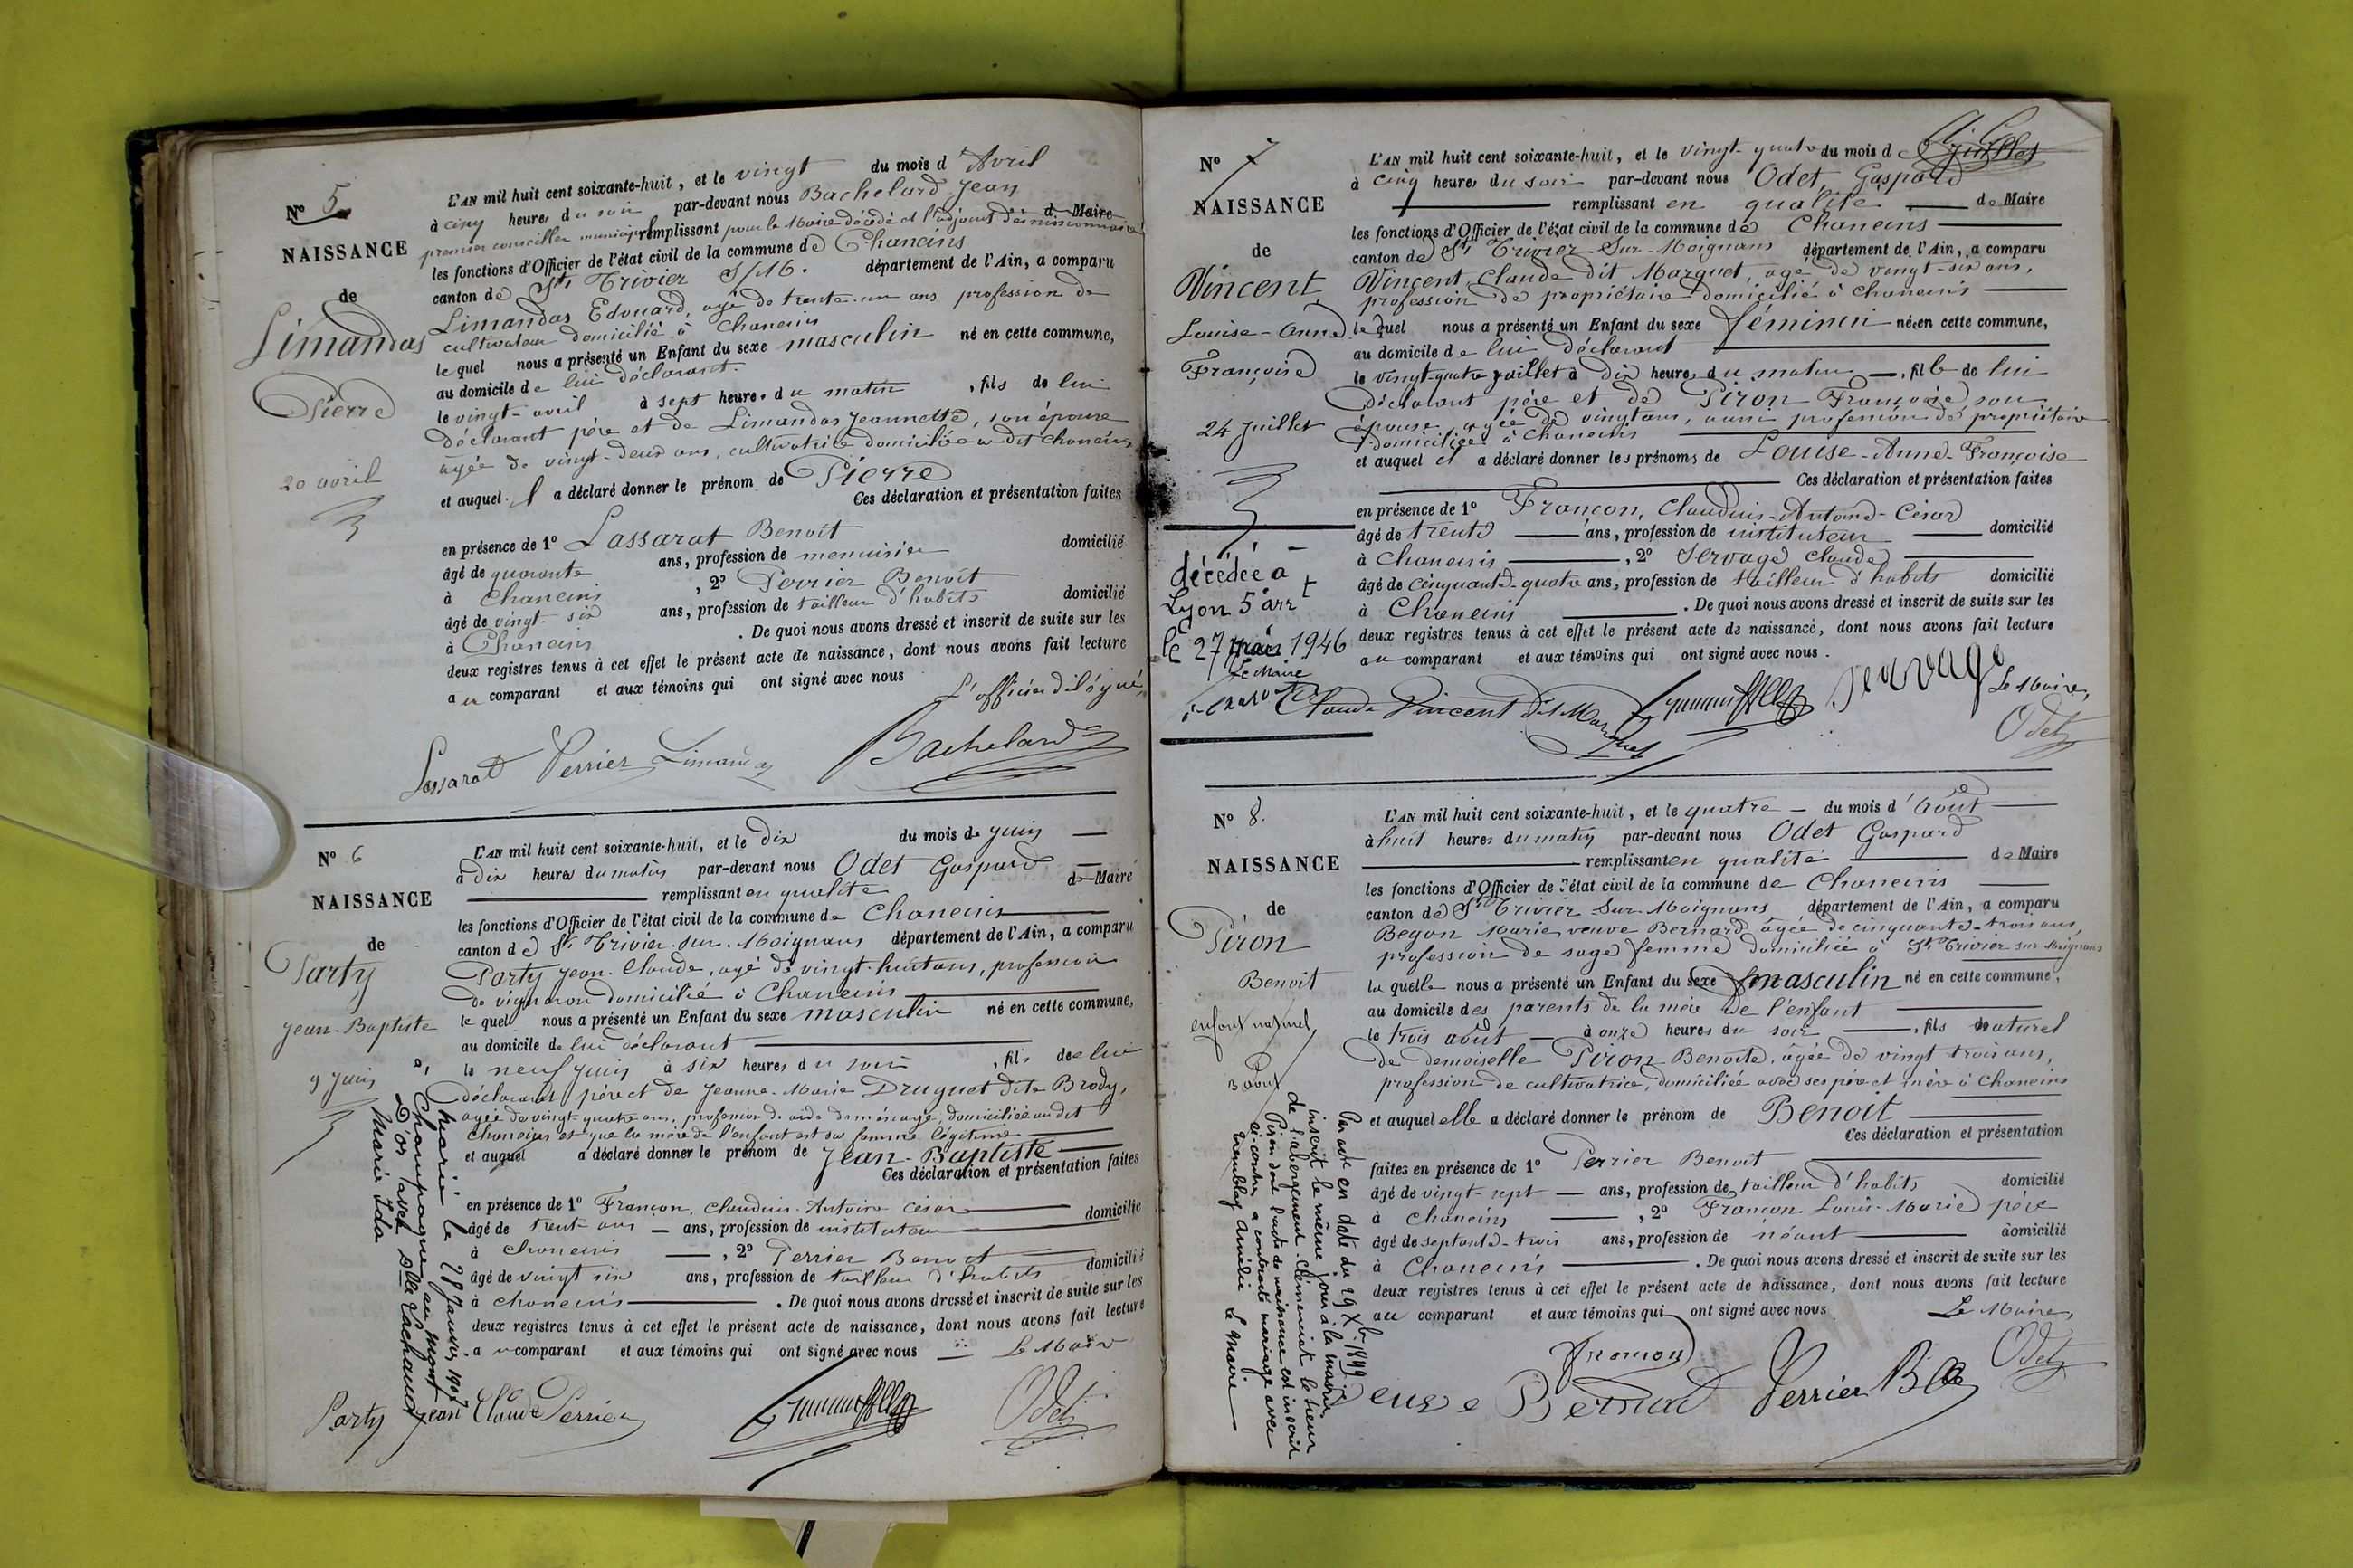 N° 5
NAISSANCE
de
Limandas
Pierre
20 avril
L'AN mil huit cent soixante-huit, et le vingt du mois d'Avril
à cinq heures du soir par-devant nous Bachelard Jean
premier conseiller municipal remplissant pour le Maire décédé et l'adjoint démissionnaire de Maire
les fonctions d'Officier de l'état civil de la commune de Chaneins
canton de St Trivier S/M. département de l'Ain, a comparu
Limandas Edouard, agé de trente-un ans profession de
cultivateur domicilié à Chaneins
le quel nous a présenté un Enfant du sexe masculin né en cette commune,
au domicile de lui déclarant.
le vingt-avril à sept heures du matin, fils de lui
déclarant père et de Limandas Jeannette, son épouse
agée de vingt-deux ans, cultivatrice domiciliée au dit Chaneins
et auquel il a déclaré donner le prénom de Pierre
Ces déclaration et présentation faites
en présence de 1° Lassarat Benoit
âgé de quarante ans, profession de menuisier domicilié
à Chaneins, 2° Perrier Benoit
âgé de vingt-six ans, profession de tailleur d'habits domicilié
à Chaneins. De quoi nous avons dressé et inscrit de suite sur les
deux registres tenus à cet effet le présent acte de naissance, dont nous avons fait lecture
au comparant et aux témoins qui ont signé avec nous
L'officier délégué,
Lassarat Perrier Limandas Bachelard
N° 6
NAISSANCE
de
Party
Jean-Baptiste
9 Juin
Marié le 28 Janvier 1907
à Champagne au mont
D'or avec Dlle Pachaud
Marie Ida
L'AN mil huit cent soixante-huit, et le dix du mois de juin
à dix heures du matin par-devant nous Odet Gaspard
remplissant en qualité de Maire
les fonctions d'Officier de l'état civil de la commune de Chaneins
canton de St Trivier-sur-Moignans département de l'Ain, a comparu
Party Jean-Claude, agé de vingt-huit ans, profession
de vigneron domicilié à Chaneins
le quel nous a présenté un Enfant du sexe masculin né en cette commune,
au domicile de lui déclarant
le neuf juin à six heures du soir, fils de lui
déclarant père et de Jeanne-Marie Druguet dite Brody,
agée de vingt-quatre ans, profession de aide de ménage, domiciliée au dit
Chaneins et que la mère de l'enfant est sa femme légitime
et auquel a déclaré donner le prénom de Jean-Baptiste
Ces déclaration et présentation faites
en présence de 1° Françon, Claudius-Antoine César
âgé de trente ans ans, profession de instituteur domicilié
à Chaneins, 2° Perrier Benoit
âgé de vingt six ans, profession de tailleur d'habits domicilié
à Chaneins. De quoi nous avons dressé et inscrit de suite sur les
deux registres tenus à cet effet le présent acte de naissance, dont nous avons fait lecture
au comparant et aux témoins qui ont signé avec nous Le Maire
Party Jean Claude Perrier Odet
N° 7
NAISSANCE
de
Vincent
Louise-Anne
Françoise
24 Juillet
décédée à
Lyon 5e arrt
le 27 mars 1946
Le Maire
L'AN mil huit cent soixante-huit, et le vingt-quatre du mois de Juillet
à cinq heures du soir par-devant nous Odet Gaspard
remplissant en qualité de Maire
les fonctions d'Officier de l'état civil de la commune de Chaneins
canton de St Trivier-Sur-Moignans département de l'Ain, a comparu
Vincent, Claude dit Marguet, agé de vingt-six ans,
profession de propriétaire domicilié à Chaneins
le quel nous a présenté un Enfant du sexe féminin née en cette commune,
au domicile de lui déclarant
le vingt-quatre juillet à dix heures du matin, fille de lui
déclarant père et de Piron Françoise son
épouse agée de vingt ans, aussi profession de propriétaire
domiciliée à Chaneins
et auquel il a déclaré donner les prénoms de Louise-Anne-Françoise
Ces déclaration et présentation faites
en présence de 1° Françon, Claudius-Antoine-César
âgé de trente ans, profession de instituteur domicilié
à Chaneins, 2° Servage Claude
âgé de cinquante-quatre ans, profession de tailleur d'habits domicilié
à Chaneins. De quoi nous avons dressé et inscrit de suite sur les
deux registres tenus à cet effet le présent acte de naissance, dont nous avons fait lecture
au comparant et aux témoins qui ont signé avec nous.
Claude Vincent dit Marguet Servage Le Maire,
Odet
N° 8.
NAISSANCE
de
Piron
Benoit
enfant naturel
3 août
Par acte en date du 29 Xbre 1899
inscrit le même jour à la mairie
de l'abergement-Clémenciat le sieur
Piron dont l'acte de naissance est inscrit
ci-contre, a contracté mariage avec
Tremblay Amélie Le Maire
L'AN mil huit cent soixante-huit, et le quatre du mois d'Août
à huit heures du matin par-devant nous Odet Gaspard
remplissant en qualité de Maire
les fonctions d'Officier de l'état civil de la commune de Chaneins
canton de St Trivier Sur-Moignans département de l'Ain, a comparu
Begon Marie, veuve Bernard, âgée de cinquante-trois ans,
profession de sage femme domiciliée à St Trivier sur Moignans
la quelle nous a présenté un Enfant du sexe masculin né en cette commune,
au domicile des parents de la mère de l'enfant
le trois août à onze heures du soir, fils naturel
de demoiselle Piron Benoite, âgée de vingt trois ans,
profession de cultivatrice, domiciliée avec ses père et mère à Chaneins
et auquel elle a déclaré donner le prénom de Benoit
Ces déclaration et présentation
faites en présence de 1° Perrier Benoit
âgé de vingt-sept ans, profession de tailleur d'habits domicilié
à Chaneins, 2° Françon Louis-Marie père
âgé de septante-trois ans, profession de néant domicilié
à Chaneins. De quoi nous avons dressé et inscrit de suite sur les
deux registres tenus à cet effet le présent acte de naissance, dont nous avons fait lecture
au comparant et aux témoins qui ont signé avec nous Le Maire,
Françon Odet
veuve Bernard Perrier B